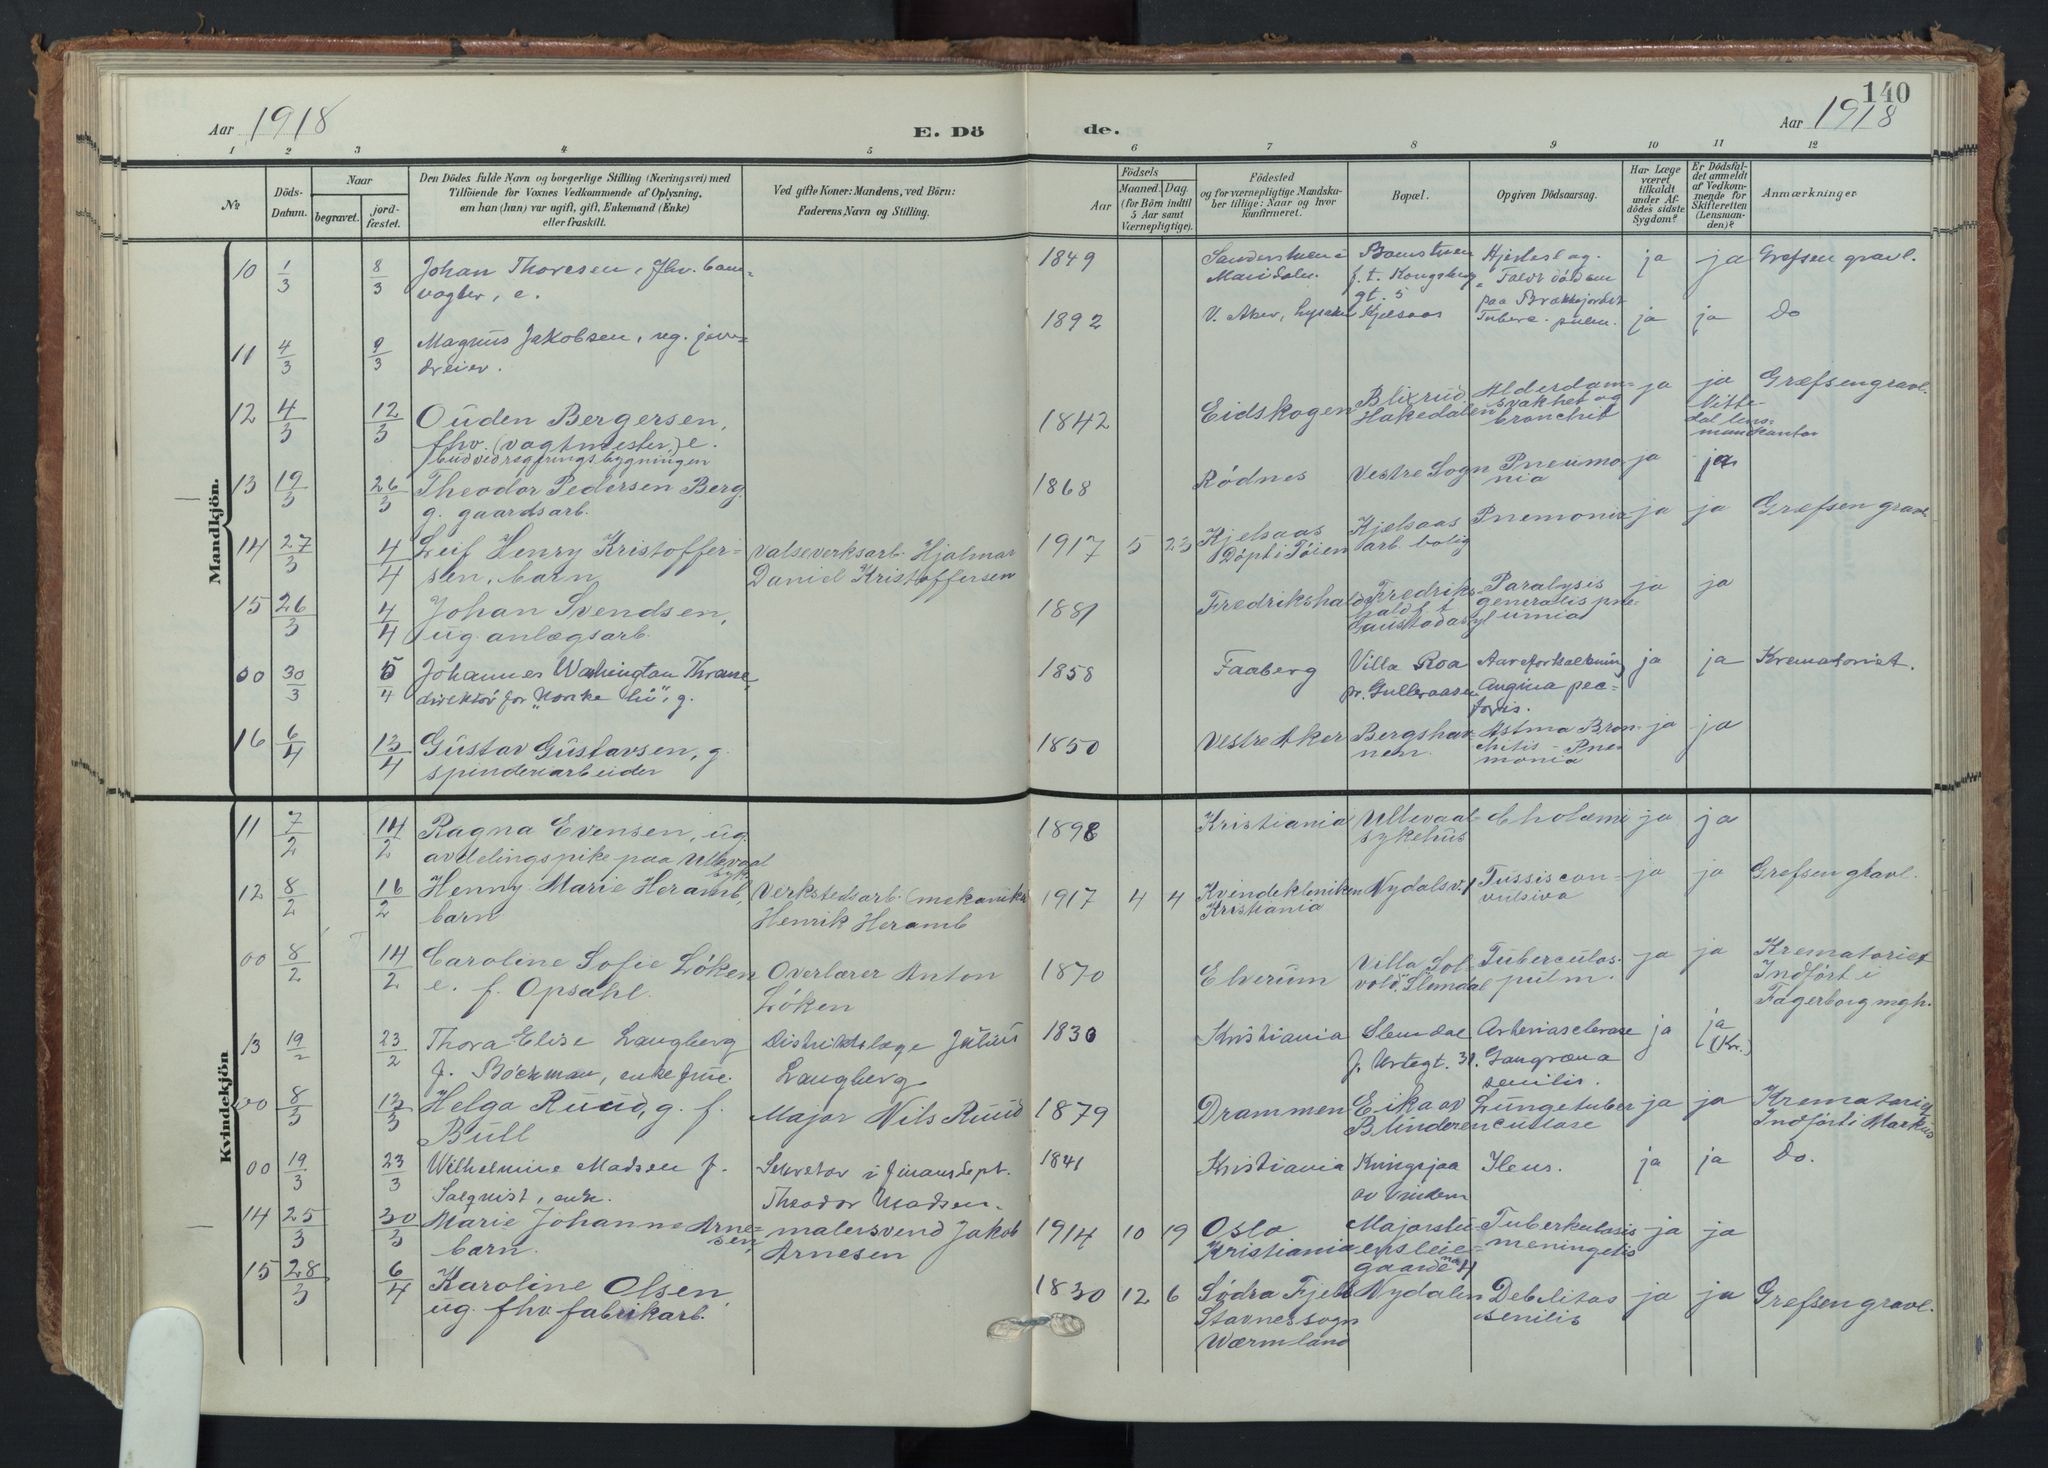 140
Aar 1918
E. Dö
de.
Aar 1918
1 2 3 4 5 6 7 8 9 10 11 12
№
Döds-
Datum.
Naar
begravet.
jord-
fæstet.
Den Dödes fulde Navn og borgerlige Stilling (Næringsvei) med
Tilföiende for Voxnes Vedkommende af Oplysning,
om han (hun) var ugift, gift, Enkemand (Enke)
eller fraskilt.
Ved gifte Koner: Mandens, ved Börn:
Faderens Navn og Stilling.
Födsels
Aar
Maaned. Dag.
(for Börn indtil
5 Aar samt
Værnepligtige).
Födested
og for værnepligtige Mandska-
ber tillige: Naar og hvor
konfirmeret.
Bopæl.
Opgiven Dödsaarsag.
Har Læge
været
tilkaldt
under Af-
dödes sidste
Sygdom?
Er Dödsfal-
det anmeldt
af Vedkom-
mende for
Skifteretten
(Lensman-
den)?
Anmærkninger
Mandkjön.
10 1/3 8/3 Johan Thoresen, fhv. ban-
vogter, e.
1849 Sanderstuen i
Maridalen.
Banestuen
f. t. Kongsberg
gt. 5
Hjerteslag.
Faldt död om
paa Brækkejordet
ja ja Grefsen gravl.
11 4/3 9/3 Magnus Jakobsen, ug. jern-
dreier.
1892 V. Aker, Lysaker Kjelsaas Tuberc. pulm. ja ja Do
12 4/3 12/3 Ouden Bergersen,
fhv. (vagtmester) e.
bud ved regjeringsbygningen
1842 Eidskogen Blixrud
Hakedalen
Alderdom-
svakhet og
bronchit
ja ja
Nitte-
dal lens-
mandkontor
Græfsengravl.
13 19/3 26/3 Theodor Pedersen Berg
g. gaardsarb.
1868 Rødnes Vestre Sogn Pneumo-
nia
ja ja
14 27/3 4/4 Leif Henry Kristoffer-
sen, barn
Valseverksarb. Hjalmar
Daniel Kristoffersen
1917 5 23 Kjelsaas
Döpt i Töien
Kjelsaas
arb. bolig
Pnemonia ja ja Græfsen gravl
15 26/3 4/4 Johan Svendsen,
ug. anlægsarb.
1881 Fredrikshald Fredriks-
hald f. t.
Gaustad asyl
Paralysis
generalis pne-
umnia
ja ja
00 30/3 5/4 Johannes Washington Thrane,
direktör for "Norske liv", g.
1858 Faaberg Villa Roa
pr. Gulleraasen
Aareforkalkning
Angina pec-
toris.
ja ja Krematoriet.
16 6/4 13/4 Gustav Gustavsen, g.
spinderiarbeider
1850 Vestre Aker Bergshav-
nen.
Astma Bron-
chitis - Pne-
monia
ja ja
Kvindekjön
11 7/2 14/2 Ragna Evensen, ug.
avdelingspike paa Ullevaal
syk.
1898 Kristiania Ullevaal
sykehus
Cholæmi ja ja
12 8/2 16/2 Henny Marie Heramb,
barn
Verkstedsarb. (mekaniker
Henrik Heramb
1917 4 4 Kvindekliniken
Kristiania
Nydalsv. 1 Tussis con-
vulsiva
ja ja Grefsen gravl.
00 8/2 14/2 Caroline Sofie Löken
e. f. Opsahl.
Overlærer Anton
Löken
1870 Elverum Villa Sol-
vold, Slemdal
Tuberculos.
pulm.
ja ja Krematoriet
Indført i
Fagerborg mgh.
13 19/2 23/2 Thora Elise Laugberg
f. Böckman, enkefrue.
Distriktslæge Julius
Laugberg
1830 Kristiania Slemdal
f. Urtegt. 31.
Arteriasclerose
Gangræna
senilis.
ja ja
(Kr.)
00 8/3 13/3 Helga Ruud, g. f.
Bull
Major Nils Ruud
1879 Drammen Eika av
Blinderen
Lungetuber
culose
ja ja Krematoriet
Indført i Markus
00 19/3 23/3 Wilhelmine Madsen f.
Salquist, enke.
Sekretær i finansdept.
Theodor Madsen.
1841 Kristiania Kringsjaa
av Vindern
Ileus. ja ja Do.
14 25/3 30/3 Marie Johanne Arne-
sen,
barn.
malersvend Jakob
Arnesen
1914 10 19 Oslo
Kristiania
Majorstu-
ens leie-
gaarde 4
Tuberkulosis
meningelis
ja ja
15 28/3 6/4 Karoline Olsen,
ug. fhv. fabrikarb.
1830 12 6 Södra Fjell
Stavnes sogn
Wærmland
Nydalen Debilitas
senilis
ja ja Grefsen gravl.